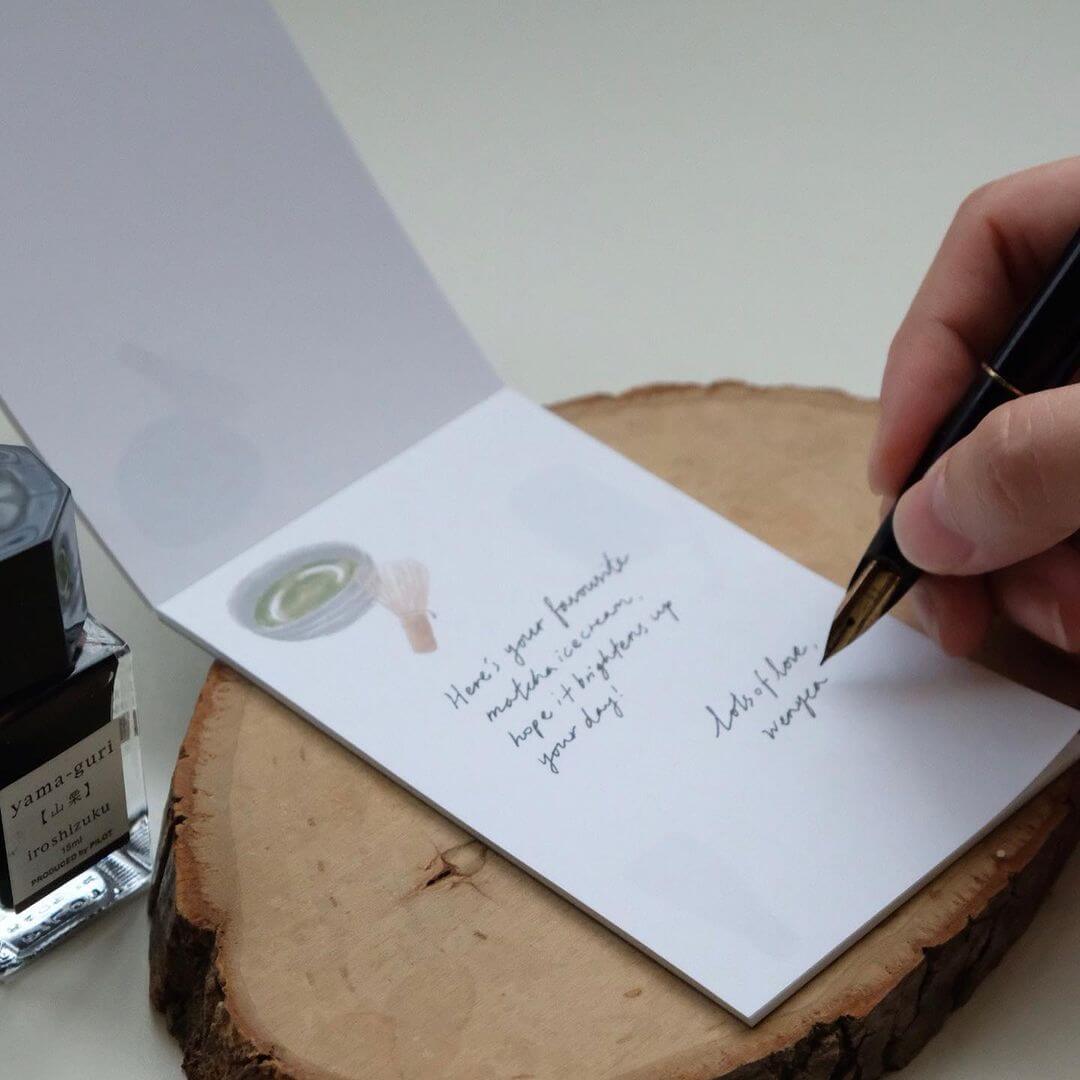 Here's your favourite
matcha icecream.
hope it brightens up
your day!
lots of love,
wenyea
yama-guri
【山栗】
iroshizuku
15ml
PRODUCED by PILOT